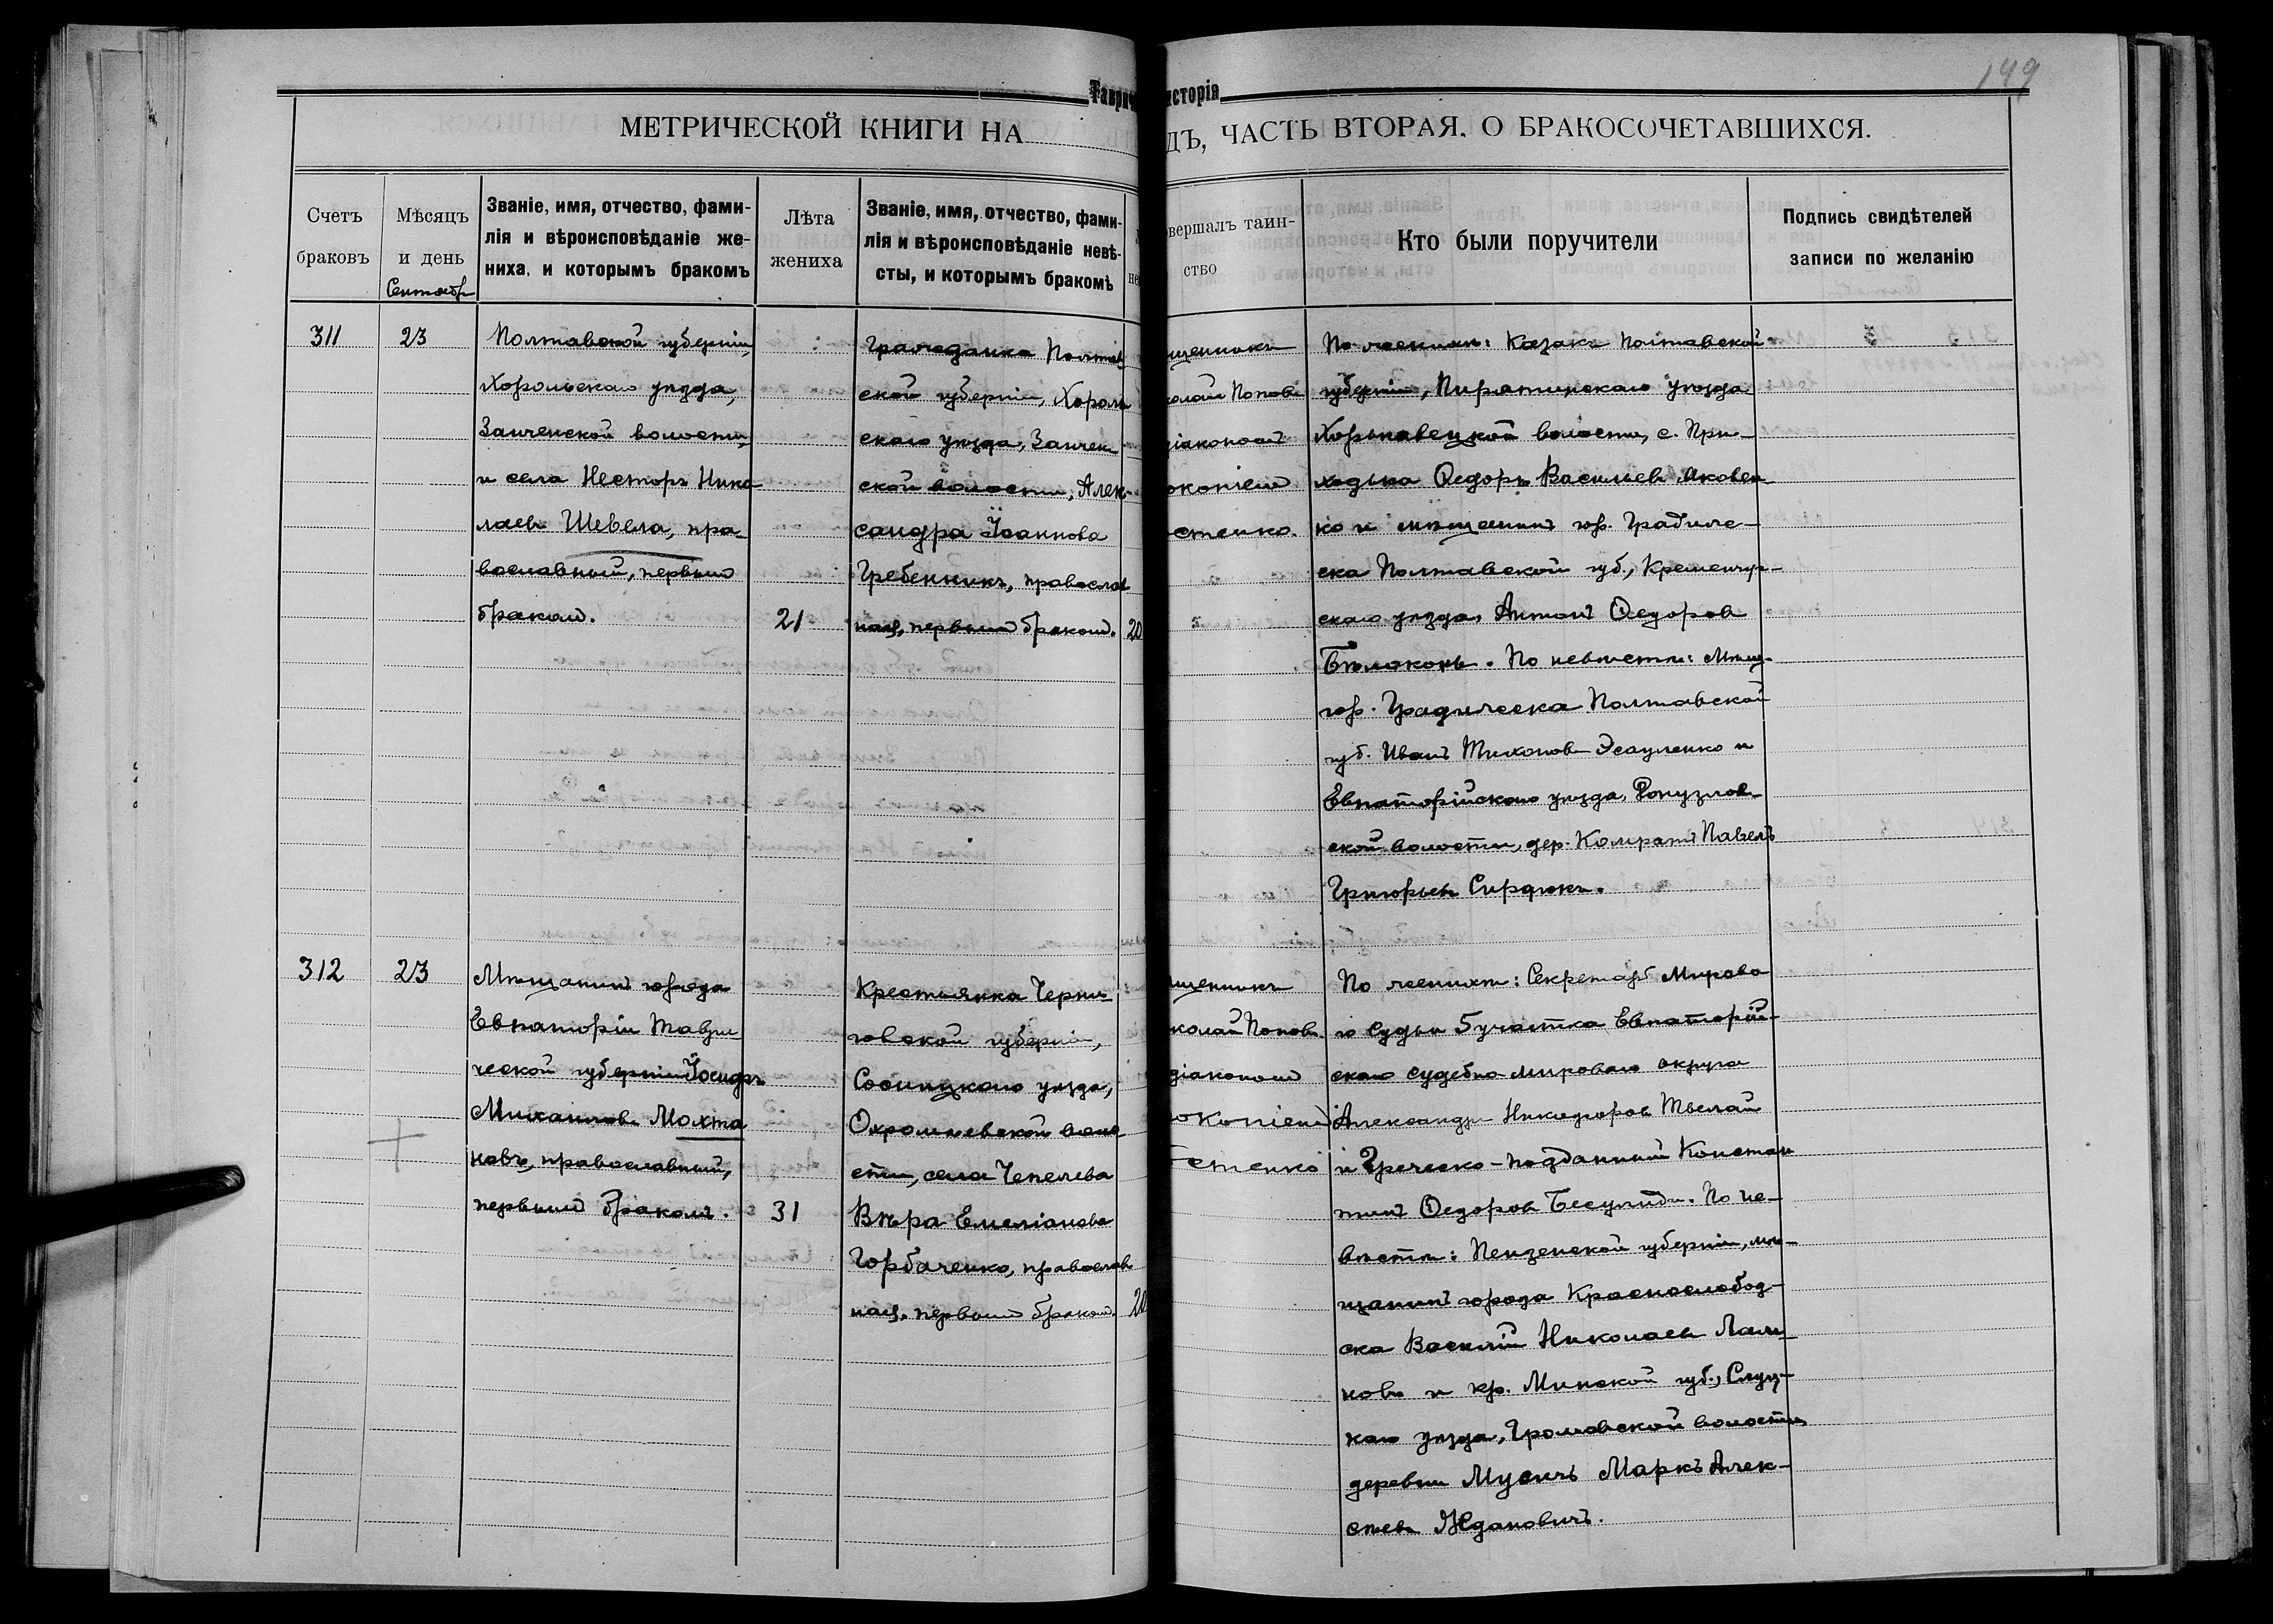 149
Таврич
исторія
МЕТРИЧЕСКОЙ КНИГИ НА
ДЪ, ЧАСТЬ ВТОРАЯ, О БРАКОСОЧЕТАВШИХСЯ.
Счетъ
браковъ
Мѣсяцъ
и день
Сентябр
Званіе, имя, отчество, фами-
лія и вѣроисповѣданіе же-
ниха, и которымъ бракомъ
Лѣта
жениха
Званіе, имя, отчество, фами-
лія и вѣроисповѣданіе невѣ-
сты, и которымъ бракомъ
овершалъ таин-
ство
Кто были поручители
Подпись свидѣтелей
записи по желанію
311
23
Полтавской губерніи,
Хорольскаго уѣзда,
Заиченской волости
и села Несторъ Нико-
лаевъ Шевела, пра-
вославный, первымъ
бракомъ.
21
Гражданка Полтав
ской губерніи, Хороль
скаго уѣзда, Заичен
ской волости, Алек-
сандра Іоаннова
Гребенникъ, православ
ная, первымъ бракомъ.
20
щенникъ
колай Поповъ
діакономъ
окопіемъ
стенко.
По женихѣ: Казакъ Полтавской
губерніи, Пирятинскаго уѣзда
волости, с. При-
ходька Ѳедоръ Васильевъ Яковен
ко и мѣщанинъ гор. Градиже-
ска Полтавской губ., Кременчуг-
скаго уѣзда, Антонъ Ѳедоровъ
Бѣлоконь. По невѣстѣ: Мѣщ.
гор. Градижска Полтавской
губ. Иванъ Тихоновъ Эсауленко и
Евпаторійскаго уѣзда, Донузлав-
ской волости, дер. Комратъ Павелъ
Григорьевъ Сирдюкъ.
312
23
Мѣщанинъ города
Евпаторіи Таври
ческой губерніи
Михаиловъ Мохта
новъ, православный,
первымъ бракомъ.
31
Крестьянка Черни
говской губерніи,
Сосницкаго уѣзда,
Охрамѣевской воло
сти, села Чепелева
Вѣра Емеліанова
Горбаченко, православ
ная, первымъ бракомъ.
20
щенникъ
колай Поповъ.
діакономъ
окопіемъ
стенко
По женихѣ: Секретарь Мирова
го Судьи 5 участка Евпаторій-
скаго судебно-мирового округа
Александръ Никифоровъ
и Греческо-подданный Констан
тинъ Ѳедоровъ По не-
вѣстѣ: Пензенской губерніи, мѣ-
щанинъ города Краснослобод-
ска Василій Николаевъ
новъ и кр. Минской губ., Слуц-
каго уѣзда, волости,
деревни Маркъ Алек-
сѣевъ Ждановичъ.